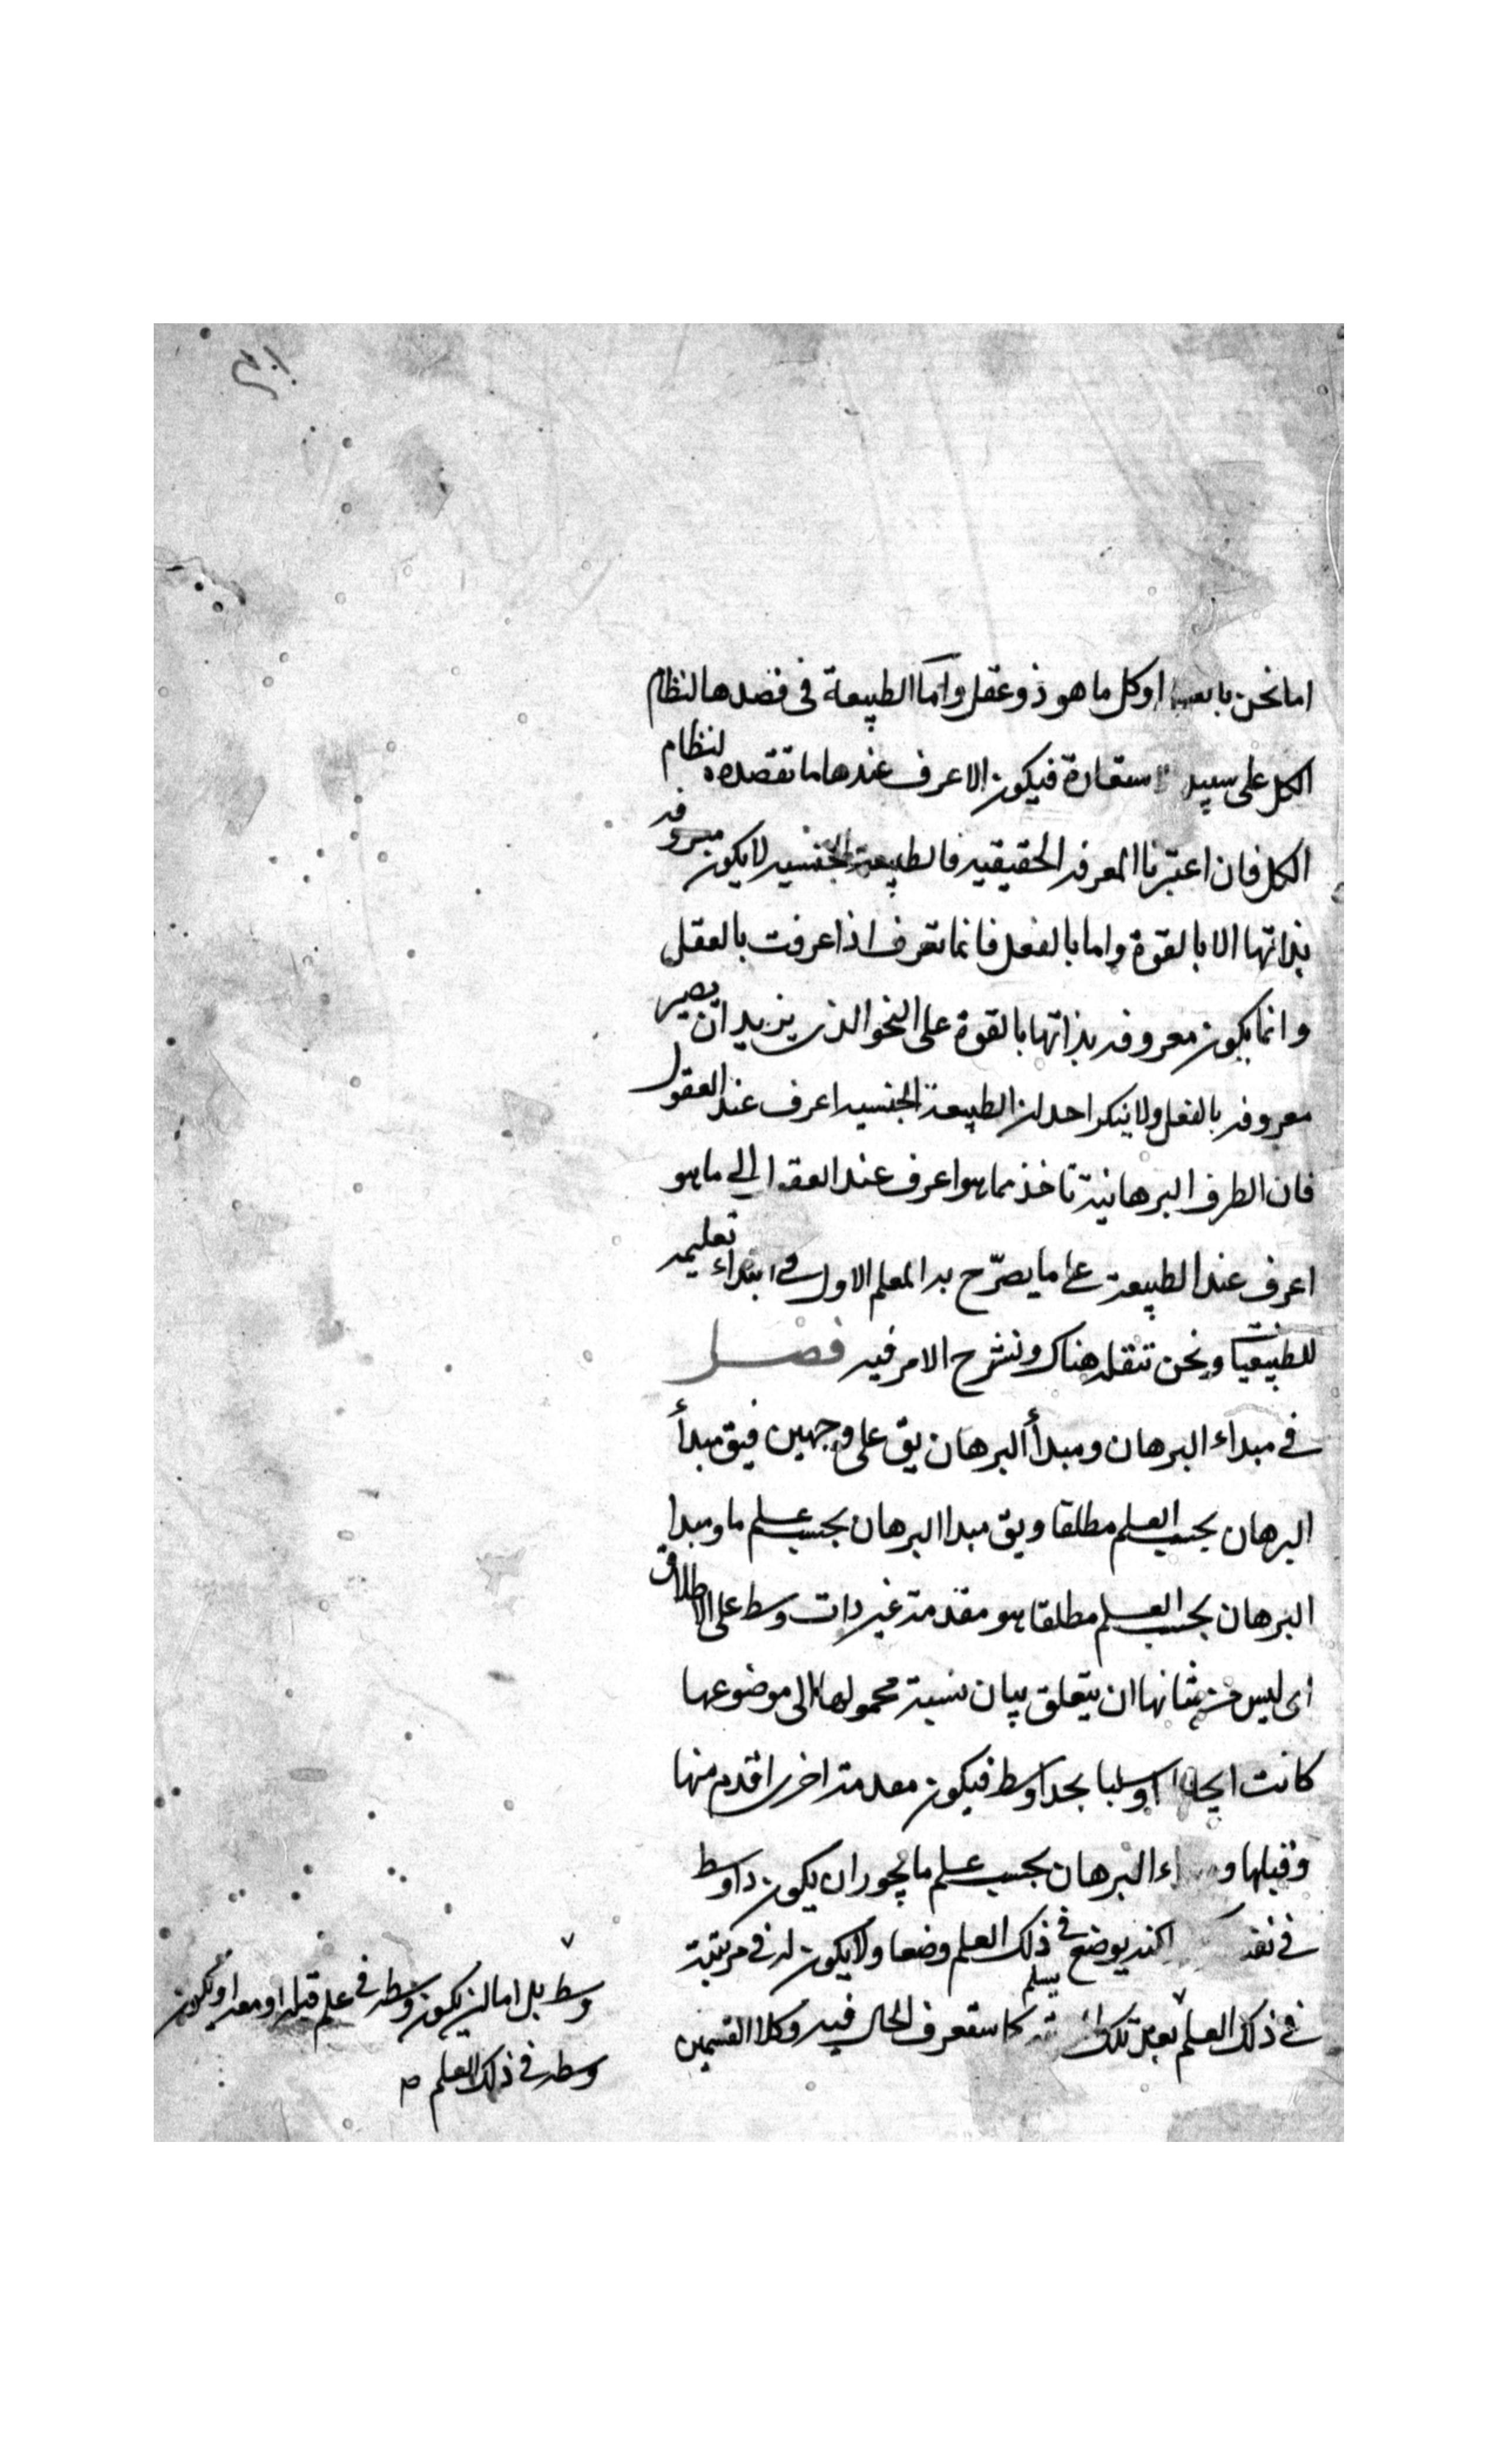 اما نحن بالعقل او كل ما هو ذو عقل واما الطبيعة فى قصدها لنظام
الكل على سبيل استعارة فيكون الاعرف عندها ما تقصده لنظام
الكل فان اعتبرنا المعرفه الحقيقيه فالطبيعة الجنسيه لا يكون معروفه
بذاتها الا بالقوة واما بالفعل فانما تعرف اذا عرفت بالعقل
وانما يكون معروفه بذاتها بالقوة على النحو الذى يزيد ان يصير
معروفه بالفعل ولا ينكر احد ان الطبيعة الجنسيه اعرف عند العقول
فان الطرف البرهانية تاخذ مما هو اعرف عند العقل الى ما هو
اعرف عند الطبيعة على ما يصرّح به المعلم الاول فى ابتداء تعليمه
للطبيعيات ونحن ننقله هناك ونشرح الامر فيه فصل
فى مبداء البرهان ومبدأ البرهان يق على وجهين فيق مبدأ
البرهان بحسب العلم مطلقا ويق مبدا البرهان بحسب علم ما ومبدا
البرهان بحسب العلم مطلقا هو مقدمة غير ذات وسط على الاطلاق
اى ليس من شانها ان يتعلق بيان نسبة محمولها الى موضوعها
كانت ايجابا او سلبا بحد اوسط فيكون مقدمة اخرى اقدم منها
وقبلها و البرهان بحسب علم ما يجوز ان يكون ذا وسط
فى نفسه لكنه يوضع فى ذلك العلم وضعا ولا يكون له فى مرتبته
فى ذلك العلم بعد تلك كما ستعرف الحال فيه وكلا القسمين
يسلم
وسط بل اما ان يكون وسطه فى علم قبله او معه او يكون
وسطه فى ذلك العلم